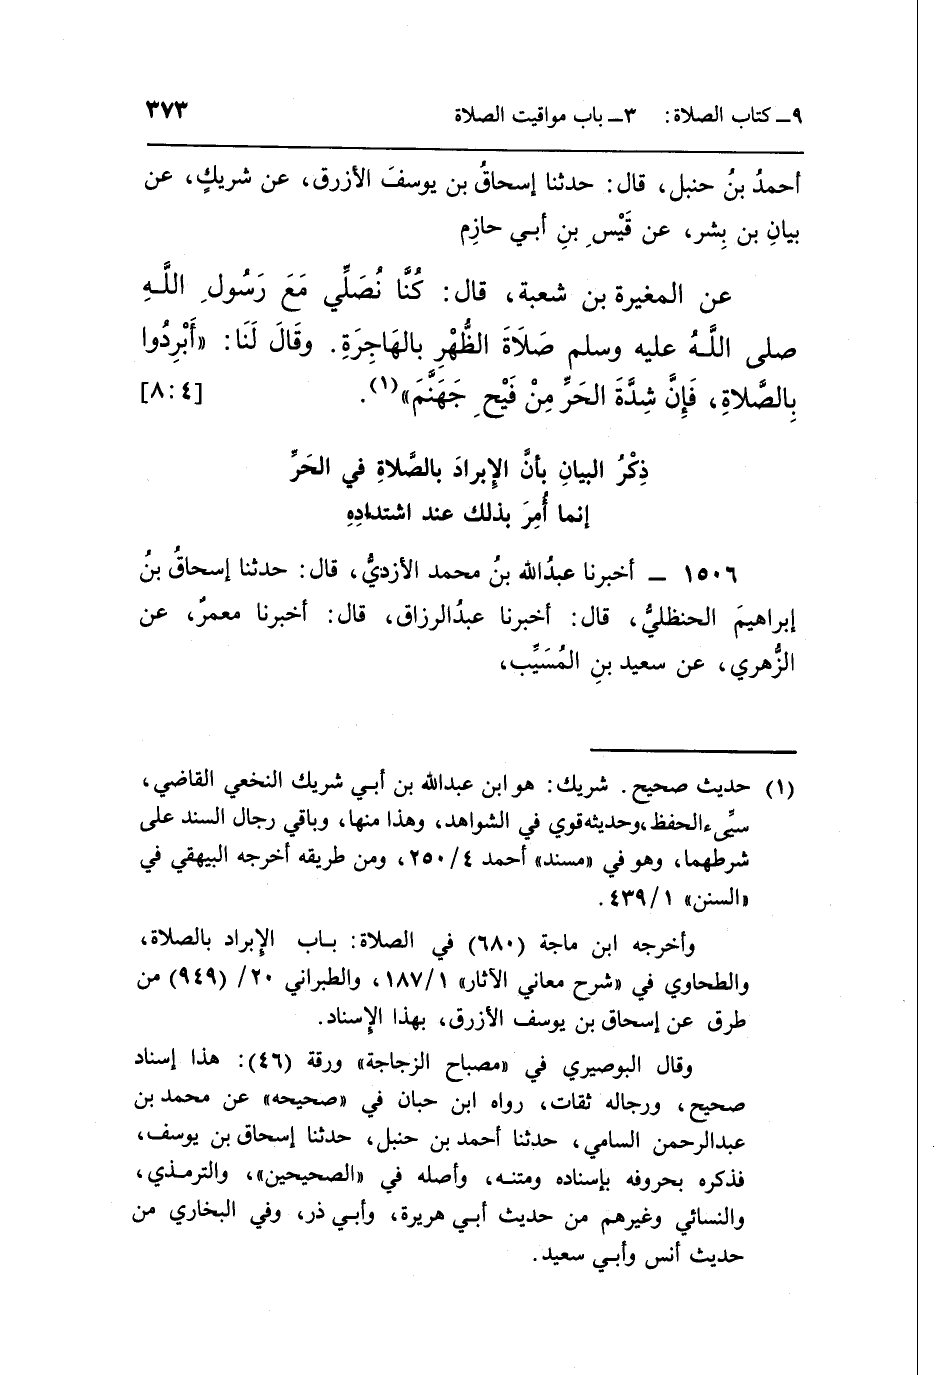 ٩ـ كتاب الصلاة: ٣ـ باب مواقيت الصلاة ٣٧٣
أحمدُ بنُ حنبل، قال: حدثنا إسحاقُ بن يوسفَ الأزرق، عن شريكٍ، عن
بيانِ بن بِشر، عن قَيْسِ بنِ أبي حازِم
عن المغيرة بن شعبة، قال: كُنَّا نُصَلِّي مَعَ رَسُولِ اللَّهِ
صلى اللَّهُ عليه وسلم صَلَاةَ الظُّهْرِ بالهَاجِرَةِ. وقَالَ لَنَا: «أَبْرِدُوا
بِالصَّلاةِ، فَإِنَّ شِدَّةَ الحَرِّ مِنْ فَيْحِ جَهَنَّمَ»(١). [٤:٨]
ذِكْرُ البيانِ بأنَّ الإِبرادَ بالصَّلاةِ في الحَرِّ
إنما أُمِرَ بذلك عند اشتدادِهِ
١٥٠٦ ـ أخبرنا عبدُالله بنُ محمد الأزديُّ، قال: حدثنا إسحاقُ بنُ
إبراهيمَ الحنظليُّ، قال: أخبرنا عبدُالرزاق، قال: أخبرنا معمرٌ، عن
الزُّهري، عن سعيد بنِ المُسَيِّب،
(١) حديث صحيح. شريك: هو ابن عبدالله بن أبي شريك النخعي القاضي،
سيِّىء الحفظ، وحديثه قوي في الشواهد، وهذا منها، وباقي رجال السند على
شرطهما، وهو في «مسند» أحمد ٤/٢٥٠، ومن طريقه أخرجه البيهقي في
«السنن» ١/٤٣٩.
وأخرجه ابن ماجة (٦٨٠) في الصلاة: باب الإِبراد بالصلاة،
والطحاوي في «شرح معاني الآثار» ١/١٨٧، والطبراني ٢٠/ (٩٤٩) من
طرق عن إسحاق بن يوسف الأزرق، بهذا الإِسناد.
وقال البوصيري في «مصباح الزجاجة» ورقة (٤٦): هذا إسناد
صحيح، ورجاله ثقات، رواه ابن حبان في «صحيحه» عن محمد بن
عبدالرحمن السامي، حدثنا أحمد بن حنبل، حدثنا إسحاق بن يوسف،
فذكره بحروفه بإسناده ومتنه، وأصله في «الصحيحين»، والترمذي،
والنسائي وغيرهم من حديث أبي هريرة، وأبي ذر، وفي البخاري من
حديث أنس وأبي سعيد.